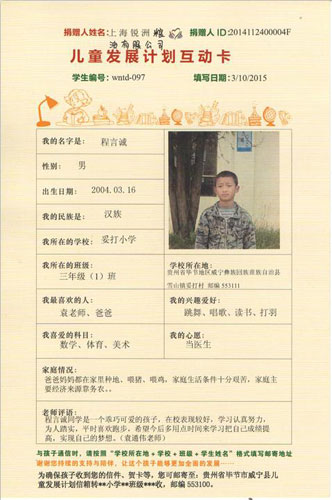 捐赠人姓名:上海锐洲粮 捐赠人 ID:2014112400004F
油有限公司
儿童发展计划互动卡
学生编号:wntd-097 填写日期:3/10/2015
我的名字是: 程言诚
性别: 男
出生日期: 2004.03.16
我的民族是: 汉族
我所在的学校: 妥打小学
我所在的班级: 学校所在地:
三年级(1)班 贵州省毕节地区威宁彝族回族苗族自治县
雪山镇妥打村 邮编 553111
我最喜欢的人: 我的兴趣爱好:
袁老师、爸爸 跳舞、唱歌、读书、打羽
我喜爱的科目: 我的心愿
数学、体育、美术 当医生
家庭情况:
爸爸妈妈都在家里种地、喂猪、喂鸡,家庭生活条件十分艰苦,家庭主
要经济来源靠务农..。
老师评语:
程言诚同学是一个乖巧可爱的孩子,在校表现较好,学习认真努力,
为人踏实,平时喜欢跑步,希望今后多用点时间来学习把自己成绩提
高,实现自己的梦想。(袁通伟老师)
与孩子通信时,请按照“学校所在地+学校+班级+学生姓名”格式填写邮寄地址
谢谢您持续的支持与陪伴,让这个孩子能够更加全面的发展……
为确保孩子收到您的信件、贺卡等,您可邮寄至:贵州省毕节市威宁县儿
童发展计划信箱转**小学**班级***收,邮编 553100.